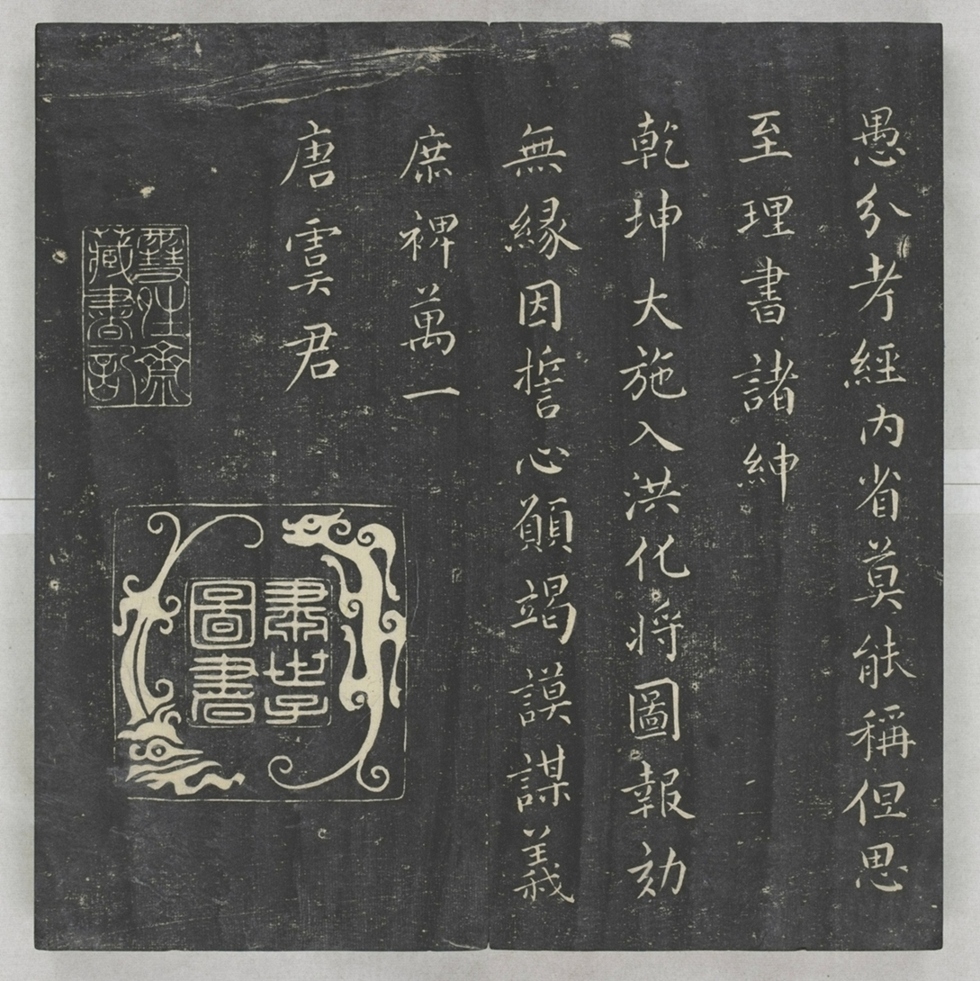 愚分考經内省莫能稱但思
至理書諸紳
乾坤大施入洪化將圖報効
無縁因誓心願竭謨謀義
庶裨萬一
唐雲君
齋
藏書記
圖書